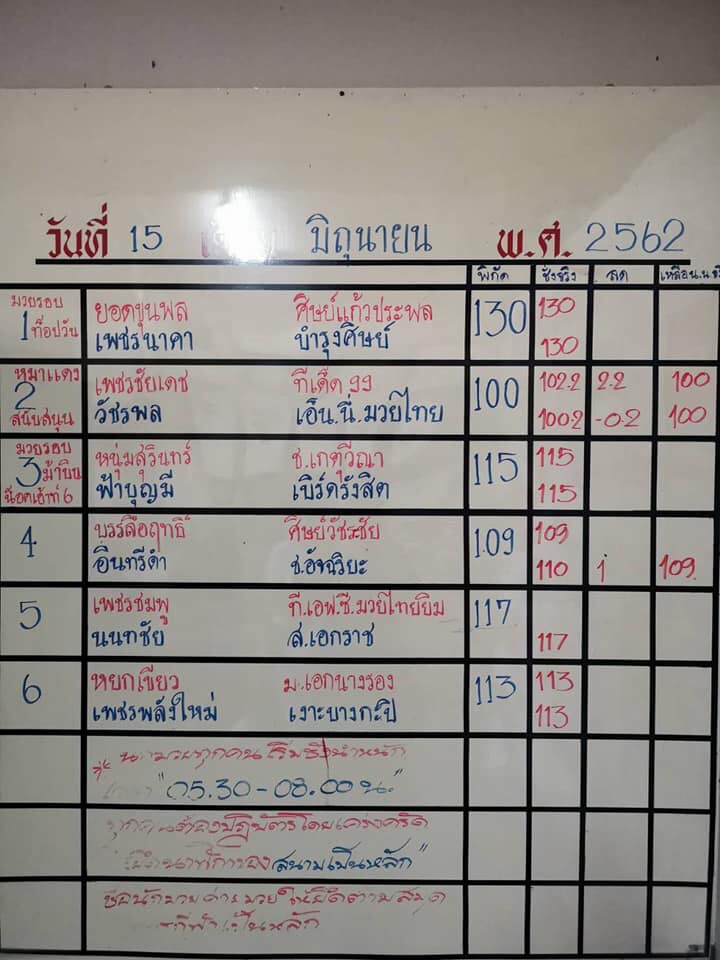 วันที่ 15 มิถุนายน พ.ศ. 2562
พิกัด ชั่งจริง ลด เหลือน.น.
มวยรอบ
1 ที่อปวัน
ยอดขุนพล ศิษย์แก้วประพล 130 130
เพชรนาคา บำรุงศิษย์ 130
หมาแดง
2
สนับสนุน
เพชรชัยเดช ทีเด็ด 99 100 102.2 2.2 100
วัชรพล เอ็น.นี่.มวยไทย 100.2 -0.2 100
มวยรอบ
3 ม้าบิน
น็อคเอ้าท์ 6
หนุ่มสุรินทร์ ช.เกตุวีณา 115 115
ฟ้าบุญมี เบิร์ดรังสิต 115
4 บรรลือฤทธิ์ ศิษย์วัชระชัย 109 109
อินทรีดำ ช.อัจฉริยะ 110 1 109
5 เพชรชมพู ที.เอฟ.ซี.มวยไทยยิม 117
นนทชัย ส.เอกราช 117
6 หยกเขียว ม.เอกนางรอง 113 113
เพชรพลังใหม่ เงาะบางกะปิ 113
มวยทุกคนเริ่มชั่งน้ำหนัก
"05.30-08.00 น."
ต้องปฏิบัติโดยเคร่งครัด
สนามเป็นหลัก"
ชื่อนักมวยค่ายมวยให้ยึดตามสมุด
กีฬาเป็นหลัก